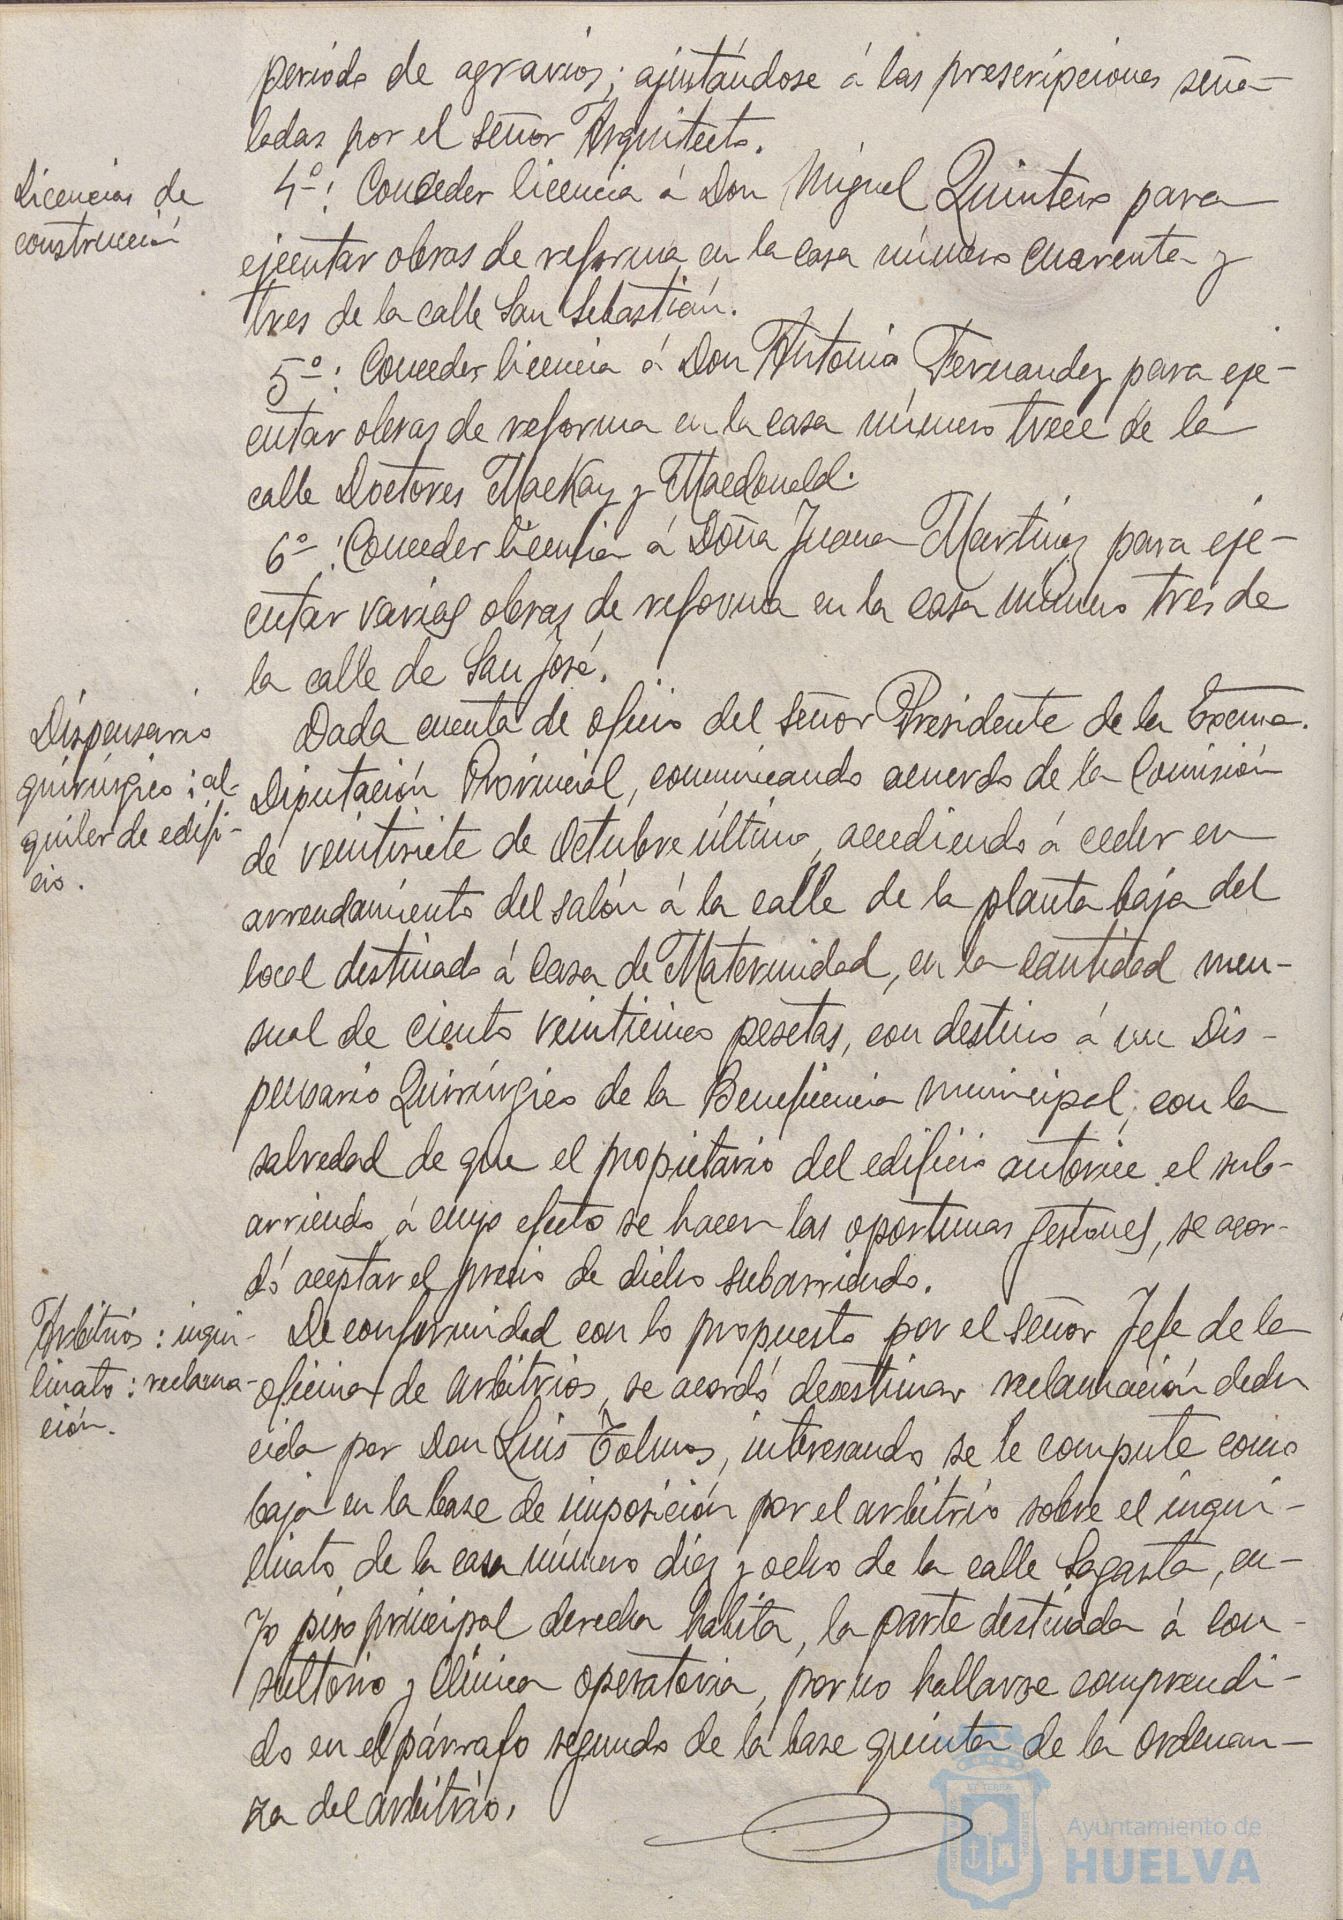 periodo de agravios; ajustándose á las prescripciones seña-
ladas por el señor Arquitecto.
Licencias de
construcción
4º: Conceder licencia á Don Miguel Quintero para
ejecutar obras de reforma en la casa número cuarenta y
tres de la calle San Sebastián.
5º: Conceder licencia á Don Antonio Fernandez para eje-
cutar obras de reforma en la casa número trece de la
calle Doctores MacKay y Macdonald.
6º: Conceder licencia á Doña Juana Martínez para eje-
cutar varias obras de reforma en la casa número tres de
la calle de San José.
Dispensario
quirúrgico: al-
quiler de edifi-
cio.
Dada cuenta de oficio del señor Presidente de la Excma.
Diputación Provincial, comunicando acuerdo de la Comisión
de veintisiete de Octubre último, accediendo á ceder en
arrendamiento del salón á la calle de la planta baja del
local destinado á Casa de Maternidad, en la cantidad men-
sual de ciento veinticinco pesetas, con destino á un Dis-
pensario Quirúrgico de la Beneficencia municipal, con la
salvedad de que el propietario del edificio autorice el sub-
arriendo, á cuyo efecto se hacen las oportunas gestiones, se acor-
dó aceptar el precio de dicho subarriendo.
Arbitrios: inqui-
linato: reclama-
ción.
De conformidad con lo propuesto por el señor Jefe de la
oficina de arbitrios, se acordó desestimar reclamación dedu
cida por Don Luis Tolmos, interesando se le compute como
baja en la base de imposición por el arbitrio sobre el inqui-
linato de la casa número diez y ocho de la calle Sagasta, cu-
yo piso principal derecha habita, la parte destinada á con-
sultorio y clínica operatoria, por no hallarse comprendi-
do en el párrafo segundo de la base quinta de la ordenan-
za del arbitrio.
Ayuntamiento de
HUELVA